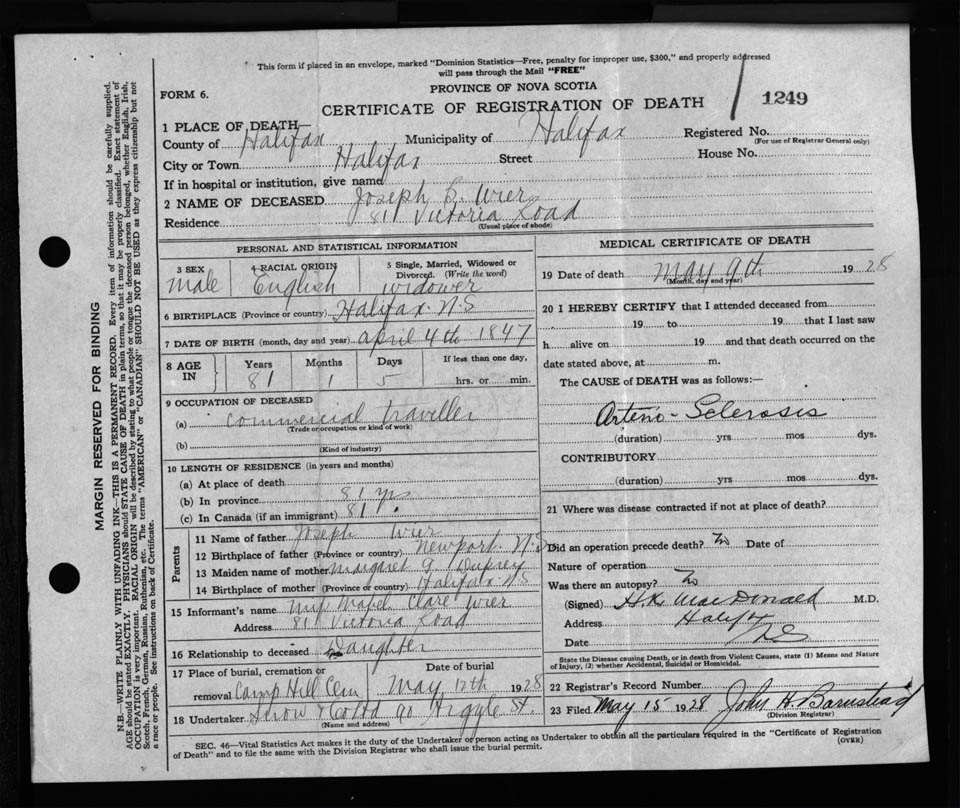 This form if placed in an envelope, marked "Dominion Statistics—Free, penalty for improper use, $300," and properly addressed
will pass through the Mail "FREE"
FORM 6.
PROVINCE OF NOVA SCOTIA
CERTIFICATE OF REGISTRATION OF DEATH
1249
1 PLACE OF DEATH—
County of Halifax Municipality of Halifax Registered No.
(For use of Registrar General only)
City or Town Halifax Street House No.
If in hospital or institution, give name
2 NAME OF DECEASED Joseph B. Wier
Residence 81 Victoria Road
(Usual place of abode)
PERSONAL AND STATISTICAL INFORMATION
3 SEX 4 RACIAL ORIGIN 5 Single, Married, Widowed or Divorced. (Write the word)
Male English widower
6 BIRTHPLACE (Province or country) Halifax N.S
7 DATE OF BIRTH (month, day and year) April 4th 1847
8 AGE IN Years Months Days If less than one day,
81 1 5 hrs. or min.
9 OCCUPATION OF DECEASED
(a) Commercial traveller
(Trade or occupation or kind of work)
(b)
(Kind of industry)
10 LENGTH OF RESIDENCE (in years and months)
(a) At place of death
(b) In province 81 yrs
(c) In Canada (if an immigrant) 81
Parents
11 Name of father Joseph Wier
12 Birthplace of father (Province or country) Newport. N.S
13 Maiden name of mother Margaret
14 Birthplace of mother (Province or country) Halifax N.S
15 Informant's name Miss Mabel Clare Wier
Address 81 Victoria Road
16 Relationship to deceased Daughter
17 Place of burial, cremation or removal Camp Hill Cem
Date of burial May 12th 1928
18 Undertaker Snow & Co Ltd 90 Argyle St.
(Name and address)
MEDICAL CERTIFICATE OF DEATH
19 Date of death May 9th 1928
(Month, day and year)
20 I HEREBY CERTIFY that I attended deceased from
19 to 19 that I last saw
h alive on 19 and that death occurred on the
date stated above, at m.
The CAUSE of DEATH was as follows:—
Arterio-Sclerosis
(duration) yrs mos dys.
CONTRIBUTORY
(duration) yrs mos dys.
21 Where was disease contracted if not at place of death?
Did an operation precede death? No Date of
Nature of operation
Was there an autopsy? No
(Signed) H.K. MacDonald M.D.
Address Halifax
Date
State the Disease causing Death, or in death from Violent Causes, state (1) Means and Nature
of Injury, (2) whether Accidental, Suicidal or Homicidal.
22 Registrar's Record Number
23 Filed May 15 1928 John H. Barnstead
(Division Registrar)
SEC. 46—Vital Statistics Act makes it the duty of the Undertaker or person acting as Undertaker to obtain all the particulars required in the "Certificate of Registration
of Death" and to file the same with the Division Registrar who shall issue the burial permit.
(OVER)
MARGIN RESERVED FOR BINDING
N.B.—WRITE PLAINLY WITH UNFADING INK—THIS IS A PERMANENT RECORD. Every item of information should be carefully supplied.
AGE should be stated EXACTLY. PHYSICIANS should STATE CAUSE OF DEATH in plain terms, so that it may be properly classified. Exact statement of
OCCUPATION is very important. RACIAL ORIGIN will be described by stating to what people or tongue the deceased person belonged, whether English, Irish,
Scotch, French, German, Russian, Ruthenian, etc. The terms "AMERICAN" or "CANADIAN" SHOULD NOT BE USED as they express citizenship but not
a race or people. See instructions on back of Certificate.